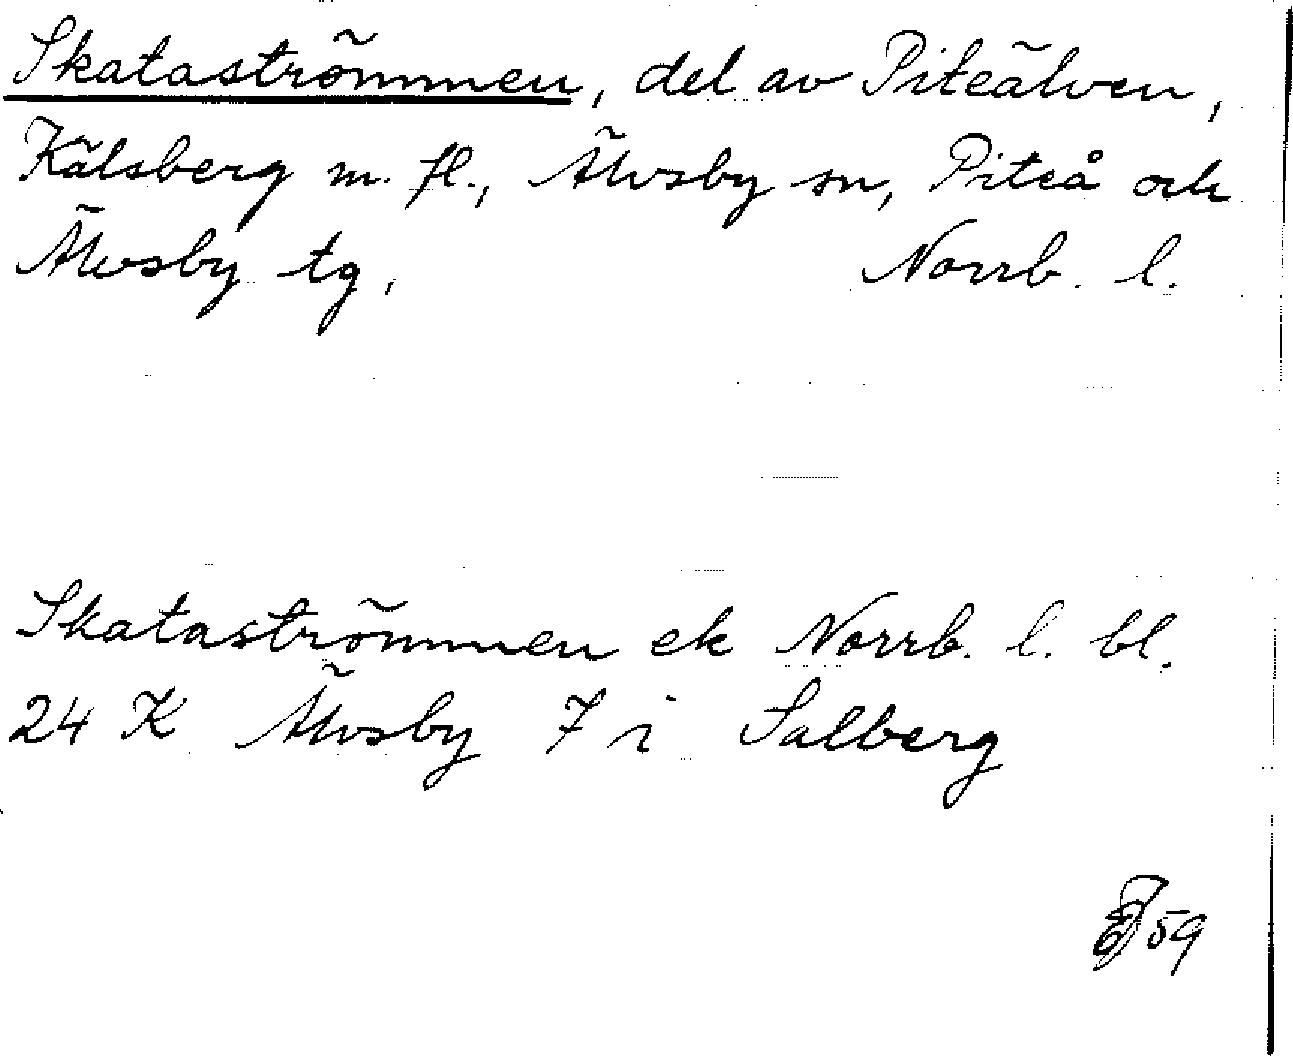 Skataströmmen, del av Piteälven,
Kälsberg m. fl., Älvsby sn, Piteå och
Älvsby tg, Norrb. l.
Skataströmmen ek Norrb. l. bl.
24 K Älvsby 7 i Salberg
59